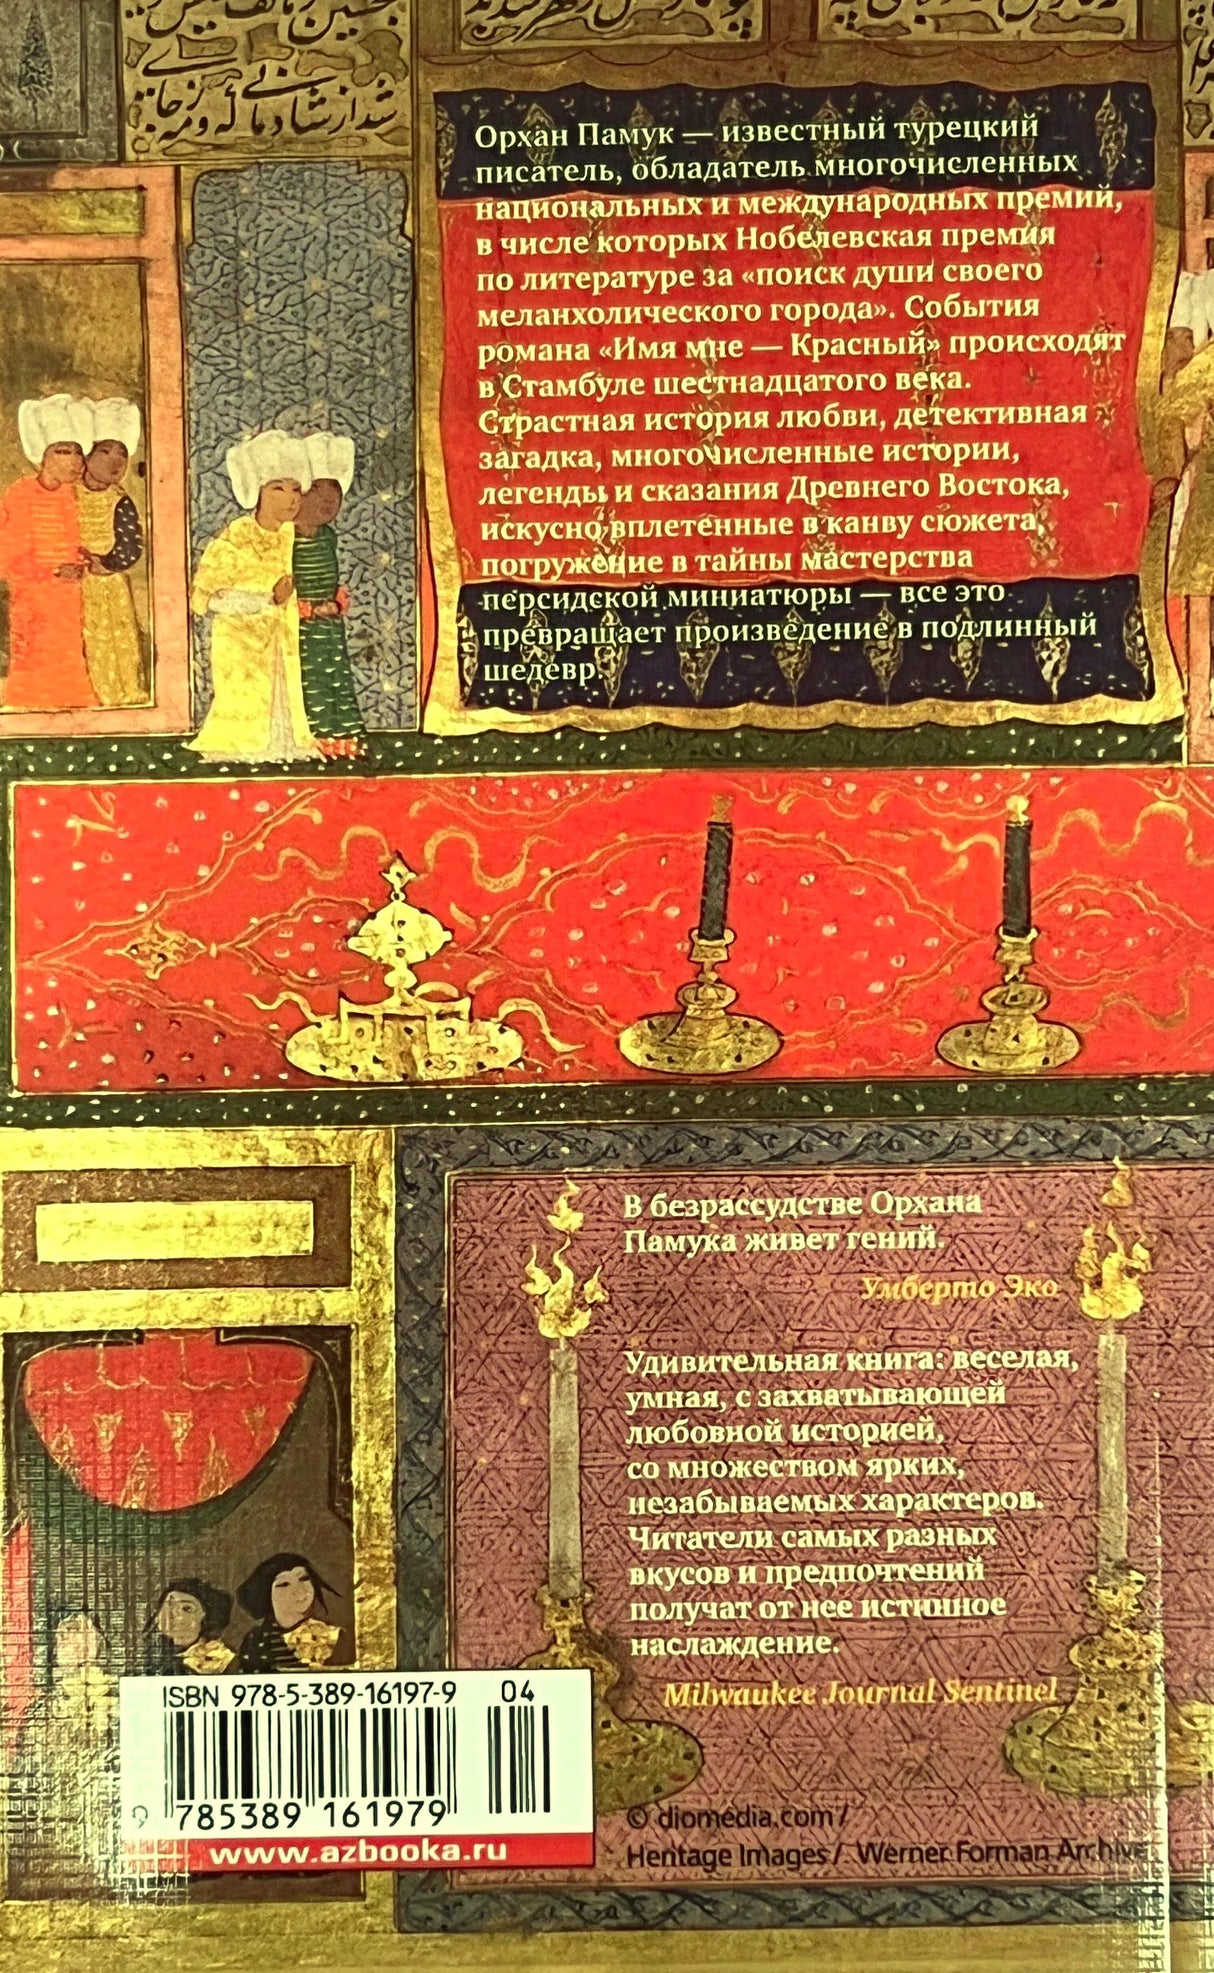 Орхан Памук — известный турецкий
писатель, обладатель многочисленных
национальных и международных премий,
в числе которых Нобелевская премия
по литературе за «поиск души своего
меланхолического города». События
романа «Имя мне — Красный» происходят
в Стамбуле шестнадцатого века.
Страстная история любви, детективная
загадка, многочисленные истории,
легенды и сказания Древнего Востока,
искусно вплетенные в канву сюжета,
погружение в тайны мастерства
персидской миниатюры — все это
превращает произведение в подлинный
шедевр.
В безрассудстве Орхана
Памука живет гений.
Умберто Эко
Удивительная книга: веселая,
умная, с захватывающей
любовной историей,
со множеством ярких,
незабываемых характеров.
Читатели самых разных
вкусов и предпочтений
получат от нее истинное
наслаждение.
Milwaukee Journal Sentinel
ISBN 978-5-389-16197-9 04
9 785389 161979
www.azbooka.ru
© diomedia.com /
Heritage Images / Werner Forman Archive